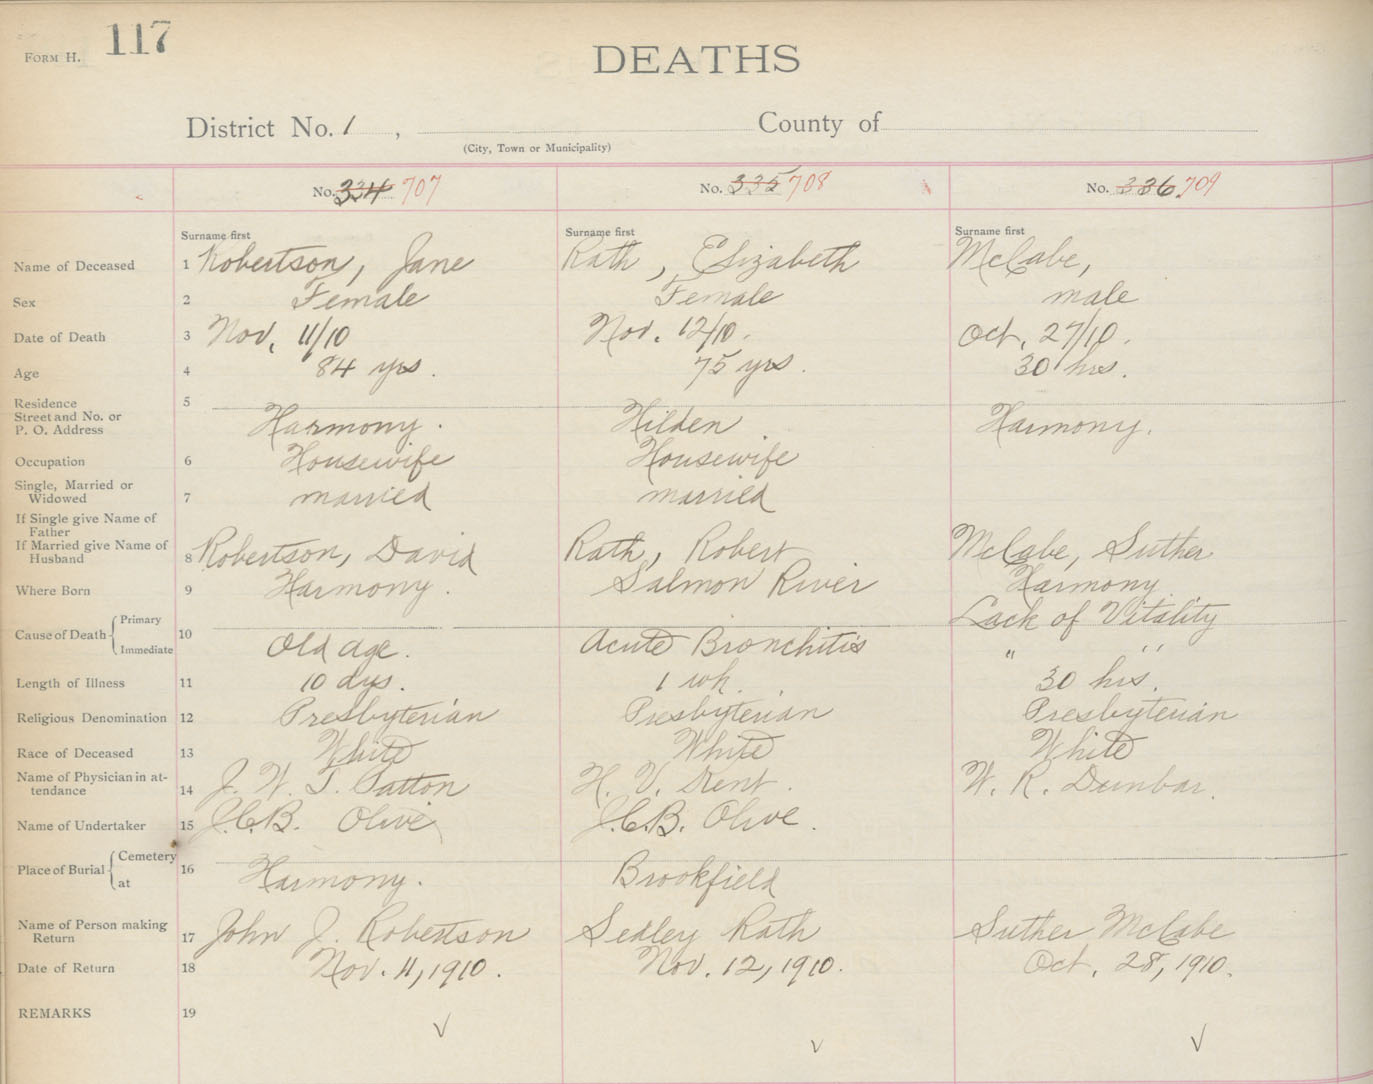 FORM H. 117
DEATHS
District No. 1, County of
(City, Town or Municipality)
No. 334 707 No. 335 708 No. 336 709
Surname first Surname first Surname first
Name of Deceased 1 Robertson, Jane Rath, Elizabeth McCabe,
Sex 2 Female Female male
Date of Death 3 Nov. 11/10 Nov. 12/10. Oct. 27/10.
Age 4 84 yrs. 75 yrs. 30 hrs.
Residence 5
Street and No. or
P. O. Address Harmony. Hilden Harmony.
Occupation 6 Housewife Housewife
Single, Married or
Widowed 7 married married
If Single give Name of
Father
If Married give Name of
Husband 8 Robertson, David Rath, Robert McCabe, Suther
Where Born 9 Harmony. Salmon River Harmony
Cause of Death { Primary 10 Lack of Vitality
Immediate Old age. Acute Bronchitis " "
Length of Illness 11 10 dys. 1 wk. 30 hrs.
Religious Denomination 12 Presbyterian Presbyterian Presbyterian
Race of Deceased 13 White White White
Name of Physician in at-
tendance 14 J. W. T. Patton H. V. Kent. W. R. Dunbar.
Name of Undertaker 15 J.C.B. Olive J.C.B. Olive.
Place of Burial { Cemetery 16
at Harmony. Brookfield
Name of Person making
Return 17 John J. Robertson Sedley Rath Suther McCabe
Date of Return 18 Nov. 11, 1910. Nov. 12, 1910. Oct. 28, 1910.
REMARKS 19